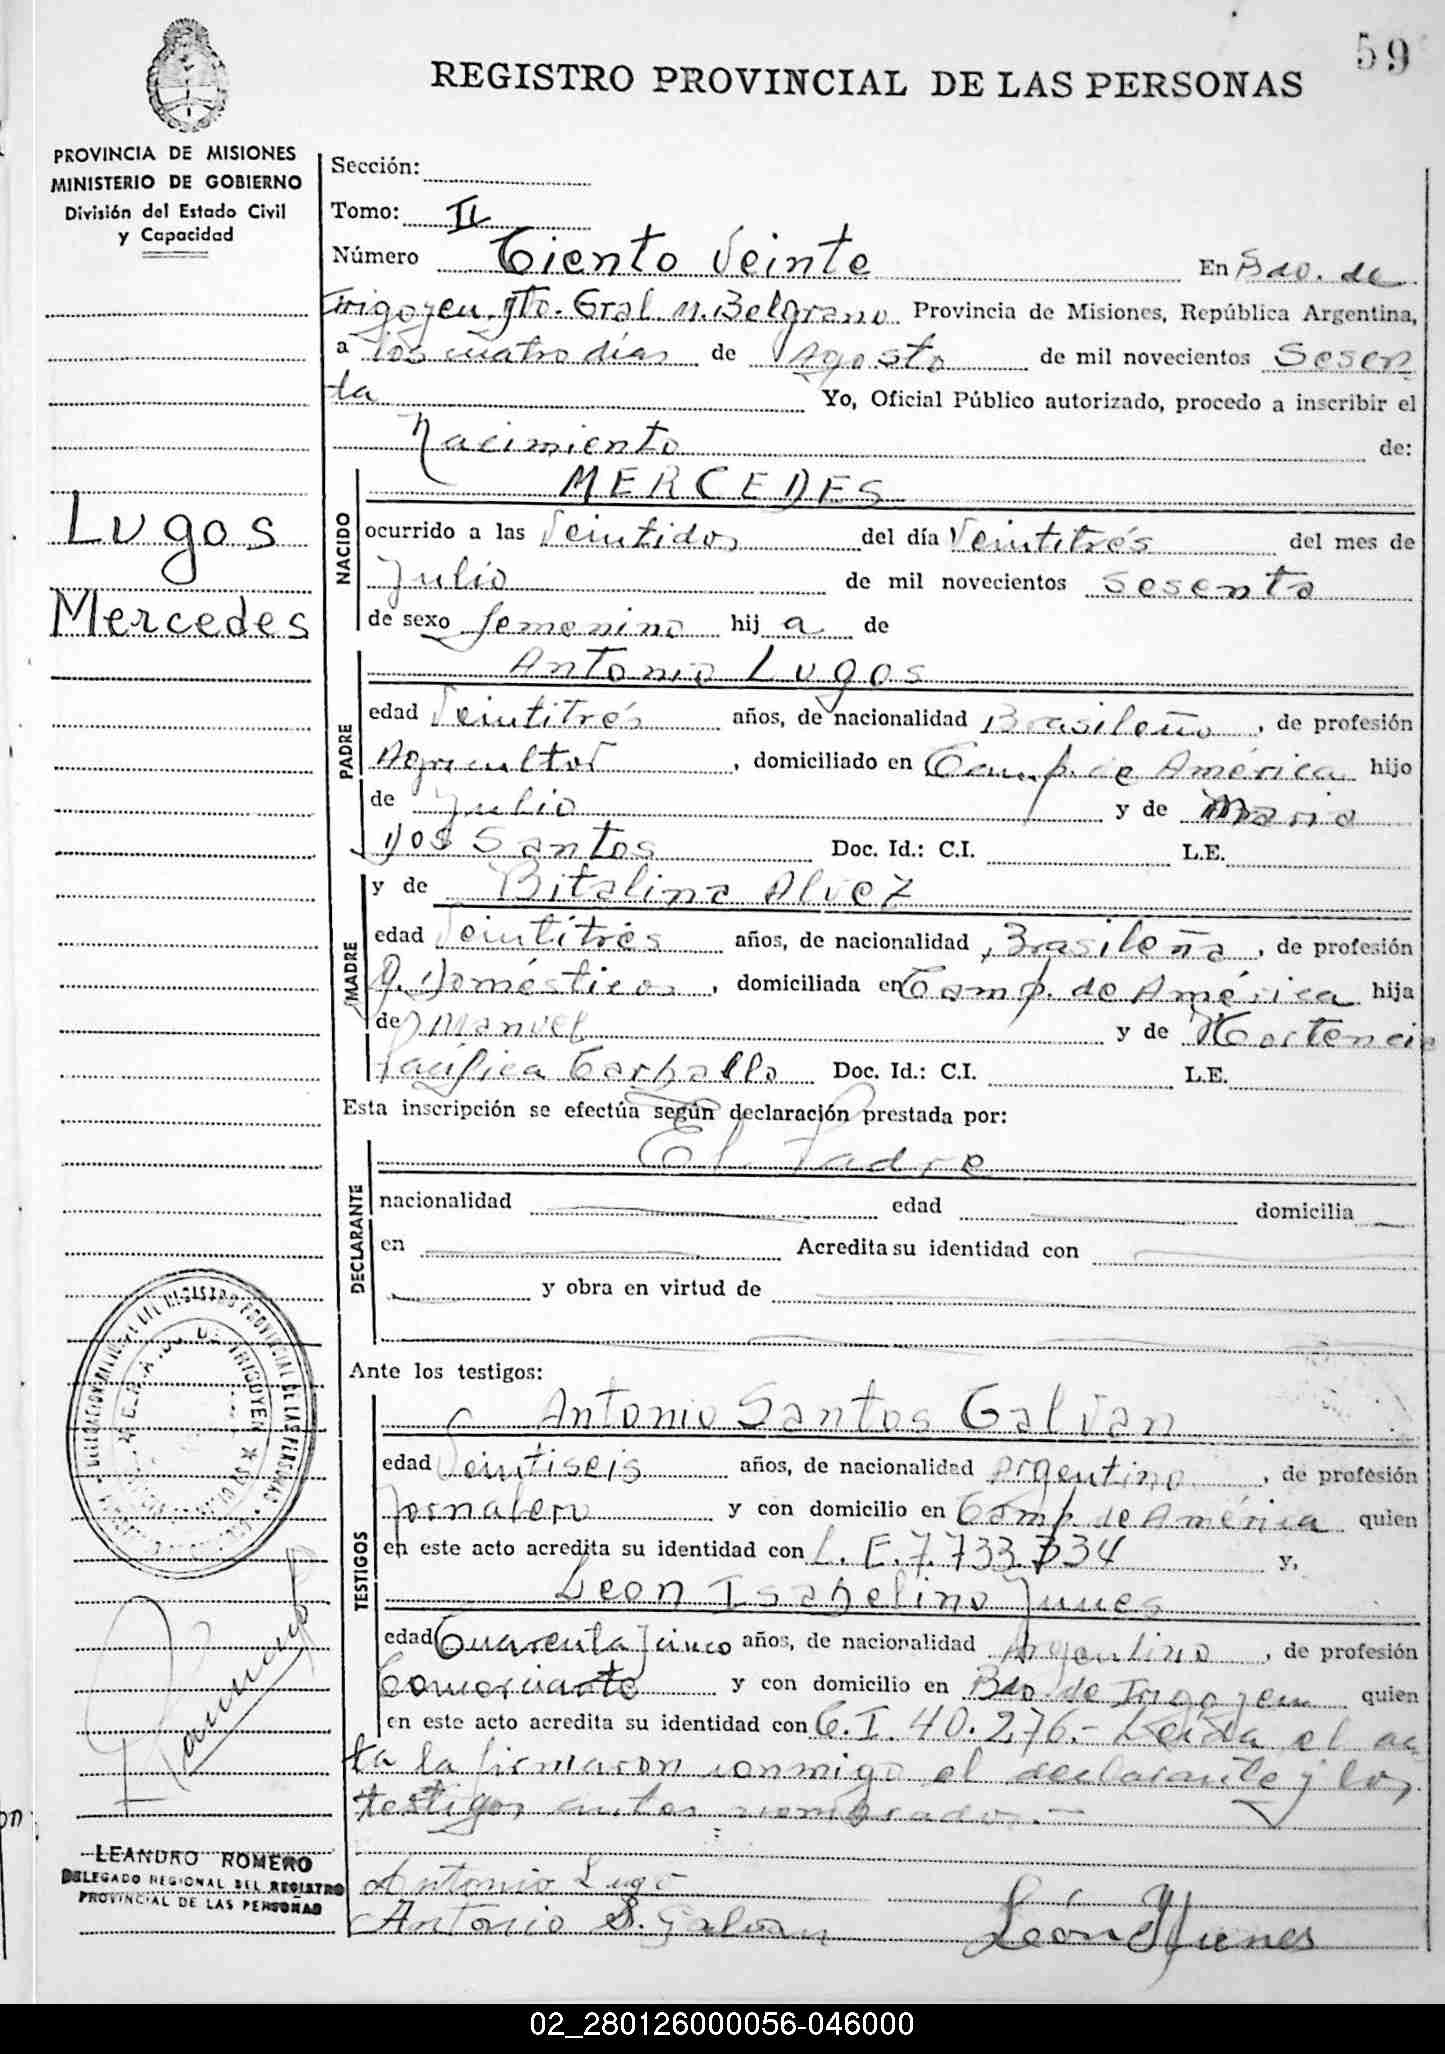 59
REGISTRO PROVINCIAL DE LAS PERSONAS
PROVINCIA DE MISIONES
MINISTERIO DE GOBIERNO
División del Estado Civil
y Capacidad
Lugos
Mercedes
Sección:
Tomo: II
Número Ciento Veinte En Bdo. de
Irigoyen, Dto. Gral M. Belgrano Provincia de Misiones, República Argentina,
a los cuatro días de Agosto de mil novecientos Sesen
ta Yo, Oficial Público autorizado, procedo a inscribir el
Nacimiento de:
NACIDO
MERCEDES
ocurrido a las Veintidos del día Veintitrés del mes de
Julio de mil novecientos sesenta
de sexo femenino hij a de
PADRE
Antonio Lugos
edad Veintitrés años, de nacionalidad Brasileño, de profesión
Agricultor, domiciliado en Camp. de América hijo
de Julio y de Maria
Dos Santos Doc. Id.: C.I. L.E.
MADRE
y de Bitalina Alvez
edad Veintitrés años, de nacionalidad Brasileña, de profesión
Q. Domésticos, domiciliada en Camp. de América hija
de Manuel y de Hortencia
Pacífica Carballo Doc. Id.: C.I. L.E.
Esta inscripción se efectúa según declaración prestada por:
DECLARANTE
El Padre
nacionalidad edad domicilia
en Acredita su identidad con
y obra en virtud de
Ante los testigos:
TESTIGOS
Antonio Santos Galvan
edad Veintiseis años, de nacionalidad Argentino, de profesión
Jornalero y con domicilio en Camp. de América quien
en este acto acredita su identidad con L.E. 7.733.734 y,
Leon Isabelino Junes
edad Cuarenta y cinco años, de nacionalidad Argentino, de profesión
Comerciante y con domicilio en Bdo. de Irigoyen quien
en este acto acredita su identidad con C.I. 40.276.- Leída el ac
ta la firmaron conmigo el declarante y los
testigos antes nombrados.-
Antonio Lugo
Antonio S. Galvan
León Yunes
LEANDRO ROMERO
DELEGADO REGIONAL DEL REGISTRO
PROVINCIAL DE LAS PERSONAS
02_280126000056-046000